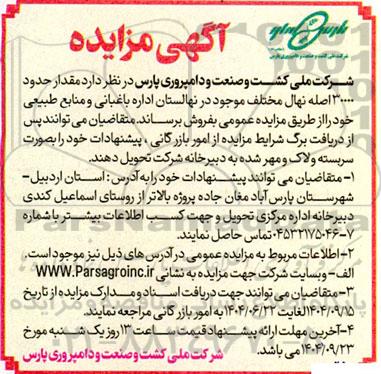 آگهی مزایده
شرکت ملی کشت و صنعت و دامپروری پارس
شرکت ملی کشت و صنعت و دامپروری پارس در نظر دارد مقدار حدود
۳۰۰۰۰ اصله نهال مختلف موجود در نهالستان اداره باغبانی و منابع طبیعی
خود را از طریق مزایده عمومی بفروش برساند. متقاضیان می توانند پس
از دریافت برگ شرایط مزایده از امور بازرگانی ، پیشنهادات خود را بصورت
سربسته و لاک و مهر شده به دبیرخانه شرکت تحویل دهند.
۱- متقاضیان می توانند پیشنهادات خود را به آدرس : استان اردبیل-
شهرستان پارس آباد مغان جاده پروژه بالاتر از روستای اسماعیل کندی
دبیرخانه اداره مرکزی تحویل و جهت کسب اطلاعات بیشتر با شماره
۷-۰۴۵۳۲۷۵۰۴۶ تماس حاصل نمایند.
۲- اطلاعات مربوط به مزایده عمومی در آدرس های ذیل نیز موجود است.
الف - وبسایت شرکت جهت مزایده به نشانی WWW.Parsagroinc.ir
۳- متقاضیان می توانند جهت دریافت اسناد و مدارک مزایده از تاریخ
۱۴۰۴/۰۹/۱۵ لغایت ۱۴۰۴/۰۶/۲۲ به امور بازرگانی مراجعه نمایند.
۴- آخرین مهلت ارائه پیشنهاد قیمت ساعت ۱۳ روز یک شنبه مورخ
۱۴۰۴/۰۹/۲۳ می باشد.
شرکت ملی کشت و صنعت و دامپروری پارس